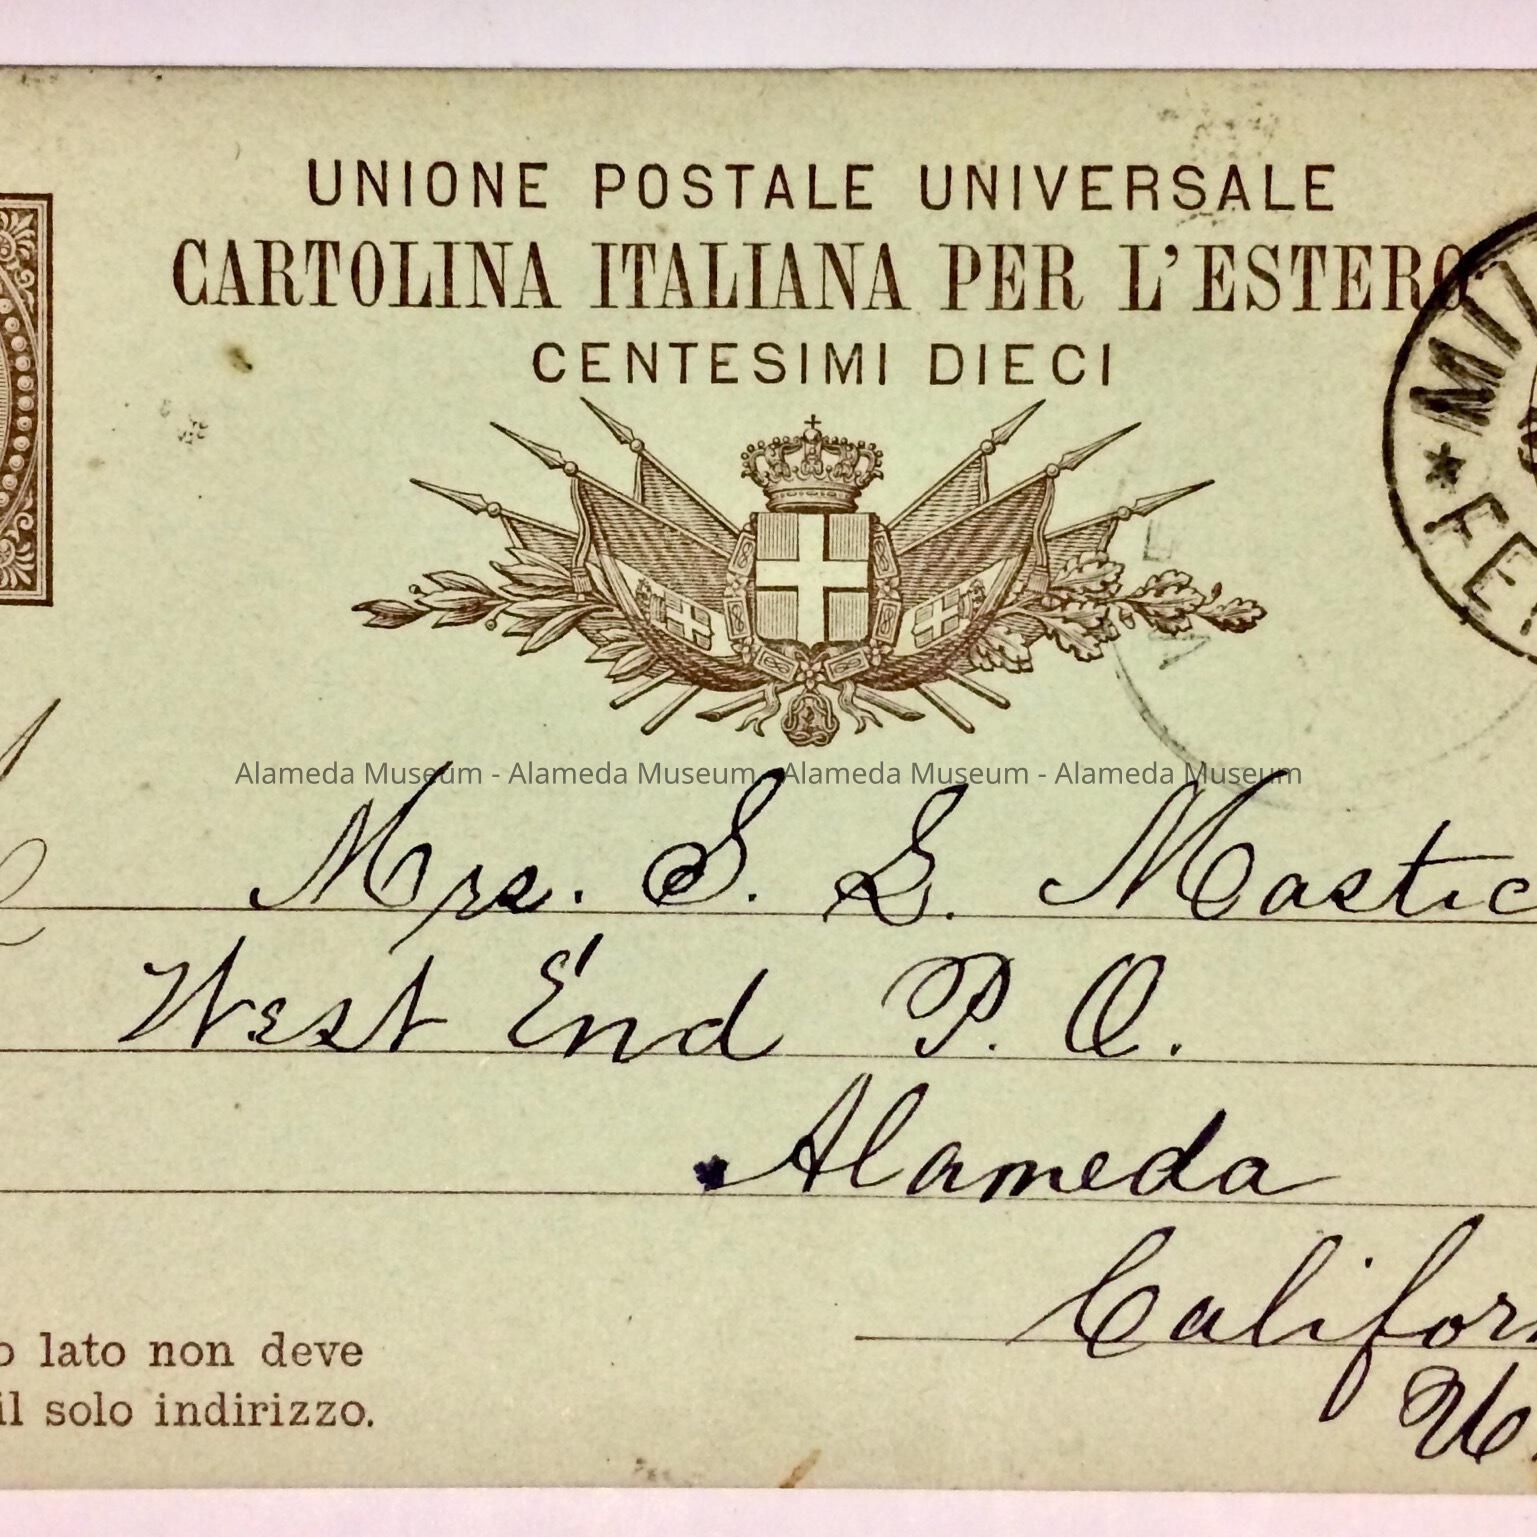 UNIONE POSTALE UNIVERSALE
CARTOLINA ITALIANA PER L'ESTERO
CENTESIMI DIECI
Alameda Museum - Alameda Museum - Alameda Museum - Alameda Museum
Mrs. S. S. Mastic
West End P. O.
Alameda
Califor
lato non deve
il solo indirizzo.